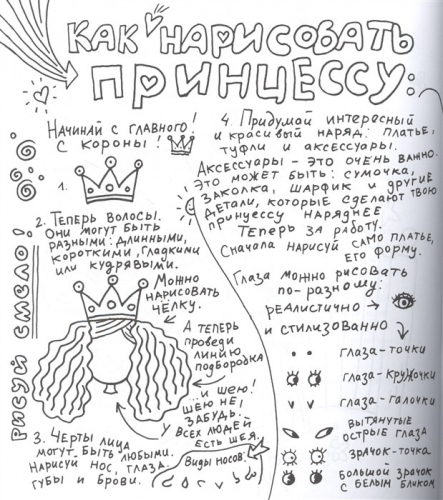 КАК НАРИСОВАТЬ
ПРИНЦЕССУ:
НАЧИНАЙ С ГЛАВНОГО!
С КОРОНЫ!
1.
2. ТЕПЕРЬ ВОЛОСЫ.
ОНИ МОГУТ БЫТЬ
РАЗНЫМИ: ДЛИННЫМИ,
КОРОТКИМИ, ГЛАДКИМИ
ИЛИ КУДРЯВЫМИ.
МОЖНО
НАРИСОВАТЬ
ЧЁЛКУ.
А ТЕПЕРЬ
ПРОВЕДИ
ЛИНИЮ
ПОДБОРОДКА
...И ШЕЮ!
ШЕЮ НЕ
ЗАБУДЬ.
У ВСЕХ ЛЮДЕЙ
ЕСТЬ ШЕЯ.
3. ЧЕРТЫ ЛИЦА
МОГУТ БЫТЬ ЛЮБЫМИ.
НАРИСУЙ НОС, ГЛАЗА,
ГУБЫ И БРОВИ.
ВИДЫ НОСОВ:
РИСУЙ СМЕЛО!
4. ПРИДУМАЙ ИНТЕРЕСНЫЙ
И КРАСИВЫЙ НАРЯД: ПЛАТЬЕ,
ТУФЛИ И АКСЕССУАРЫ.
АКСЕССУАРЫ - ЭТО ОЧЕНЬ ВАЖНО.
ЭТО МОЖЕТ БЫТЬ: СУМОЧКА,
ЗАКОЛКА, ШАРФИК И ДРУГИЕ
ДЕТАЛИ, КОТОРЫЕ СДЕЛАЮТ ТВОЮ
ПРИНЦЕССУ НАРЯДНЕЕ
ТЕПЕРЬ ЗА РАБОТУ.
СНАЧАЛА НАРИСУЙ САМО ПЛАТЬЕ,
ЕГО ФОРМУ.
ГЛАЗА МОЖНО РИСОВАТЬ
ПО-РАЗНОМУ:
РЕАЛИСТИЧНО
И СТИЛИЗОВАННО
ГЛАЗА-ТОЧКИ
ГЛАЗА-КРУЖОЧКИ
ГЛАЗА-ГАЛОЧКИ
ВЫТЯНУТЫЕ
ОСТРЫЕ ГЛАЗА
ЗРАЧОК-ТОЧКА
БОЛЬШОЙ ЗРАЧОК
С БЕЛЫМ БЛИКОМ